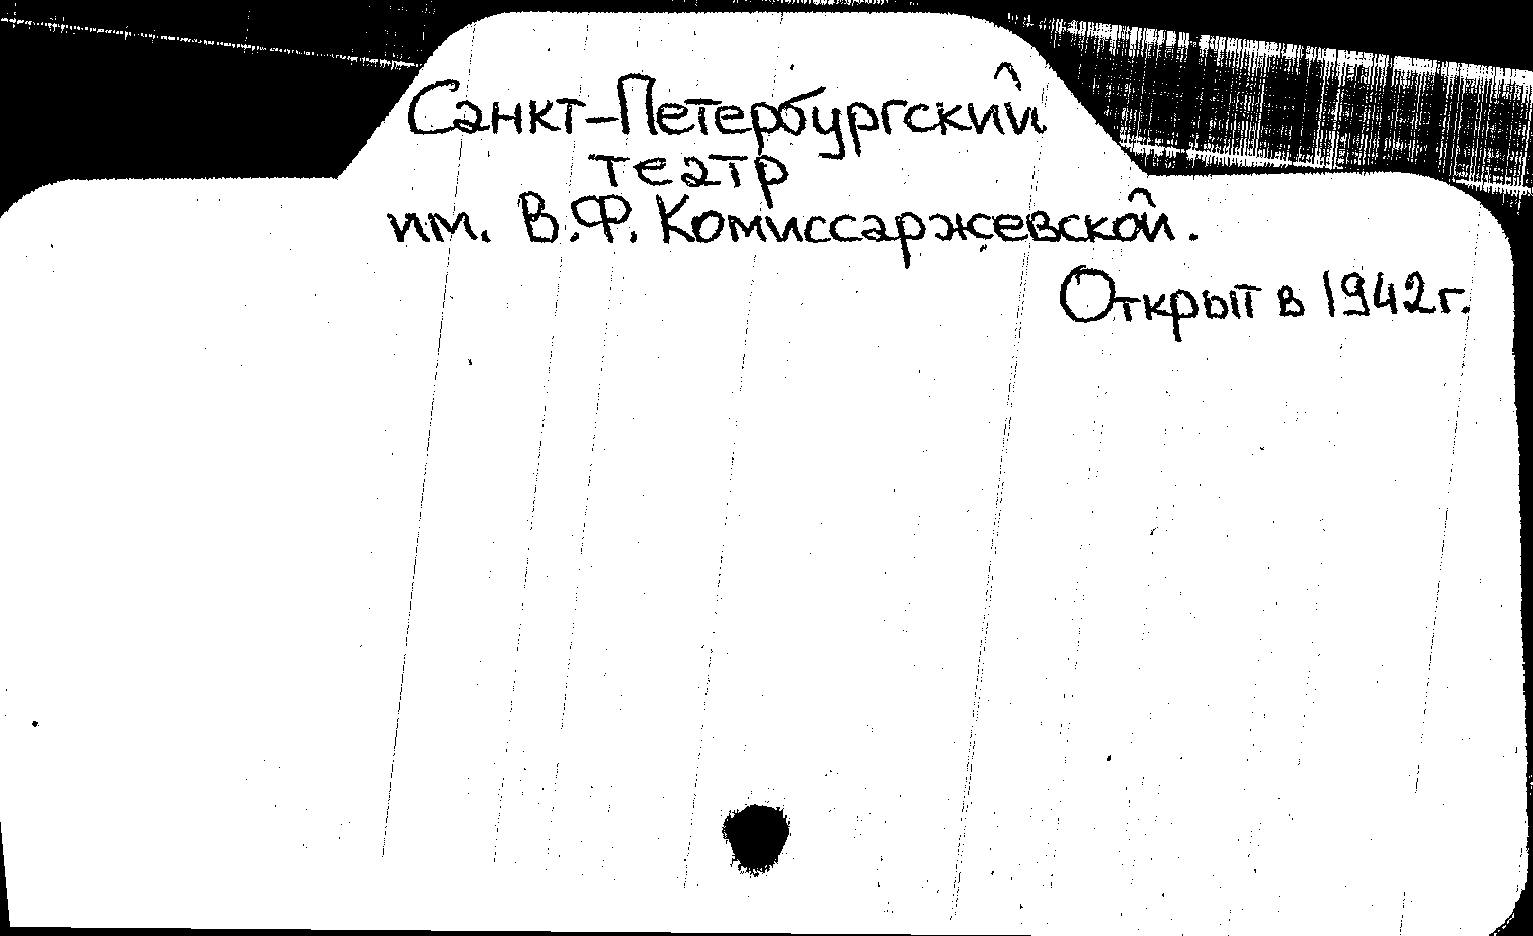 Санкт-Петербургский
театр
им. В.Ф. Комиссаржевской.
Открыт в 1942г.